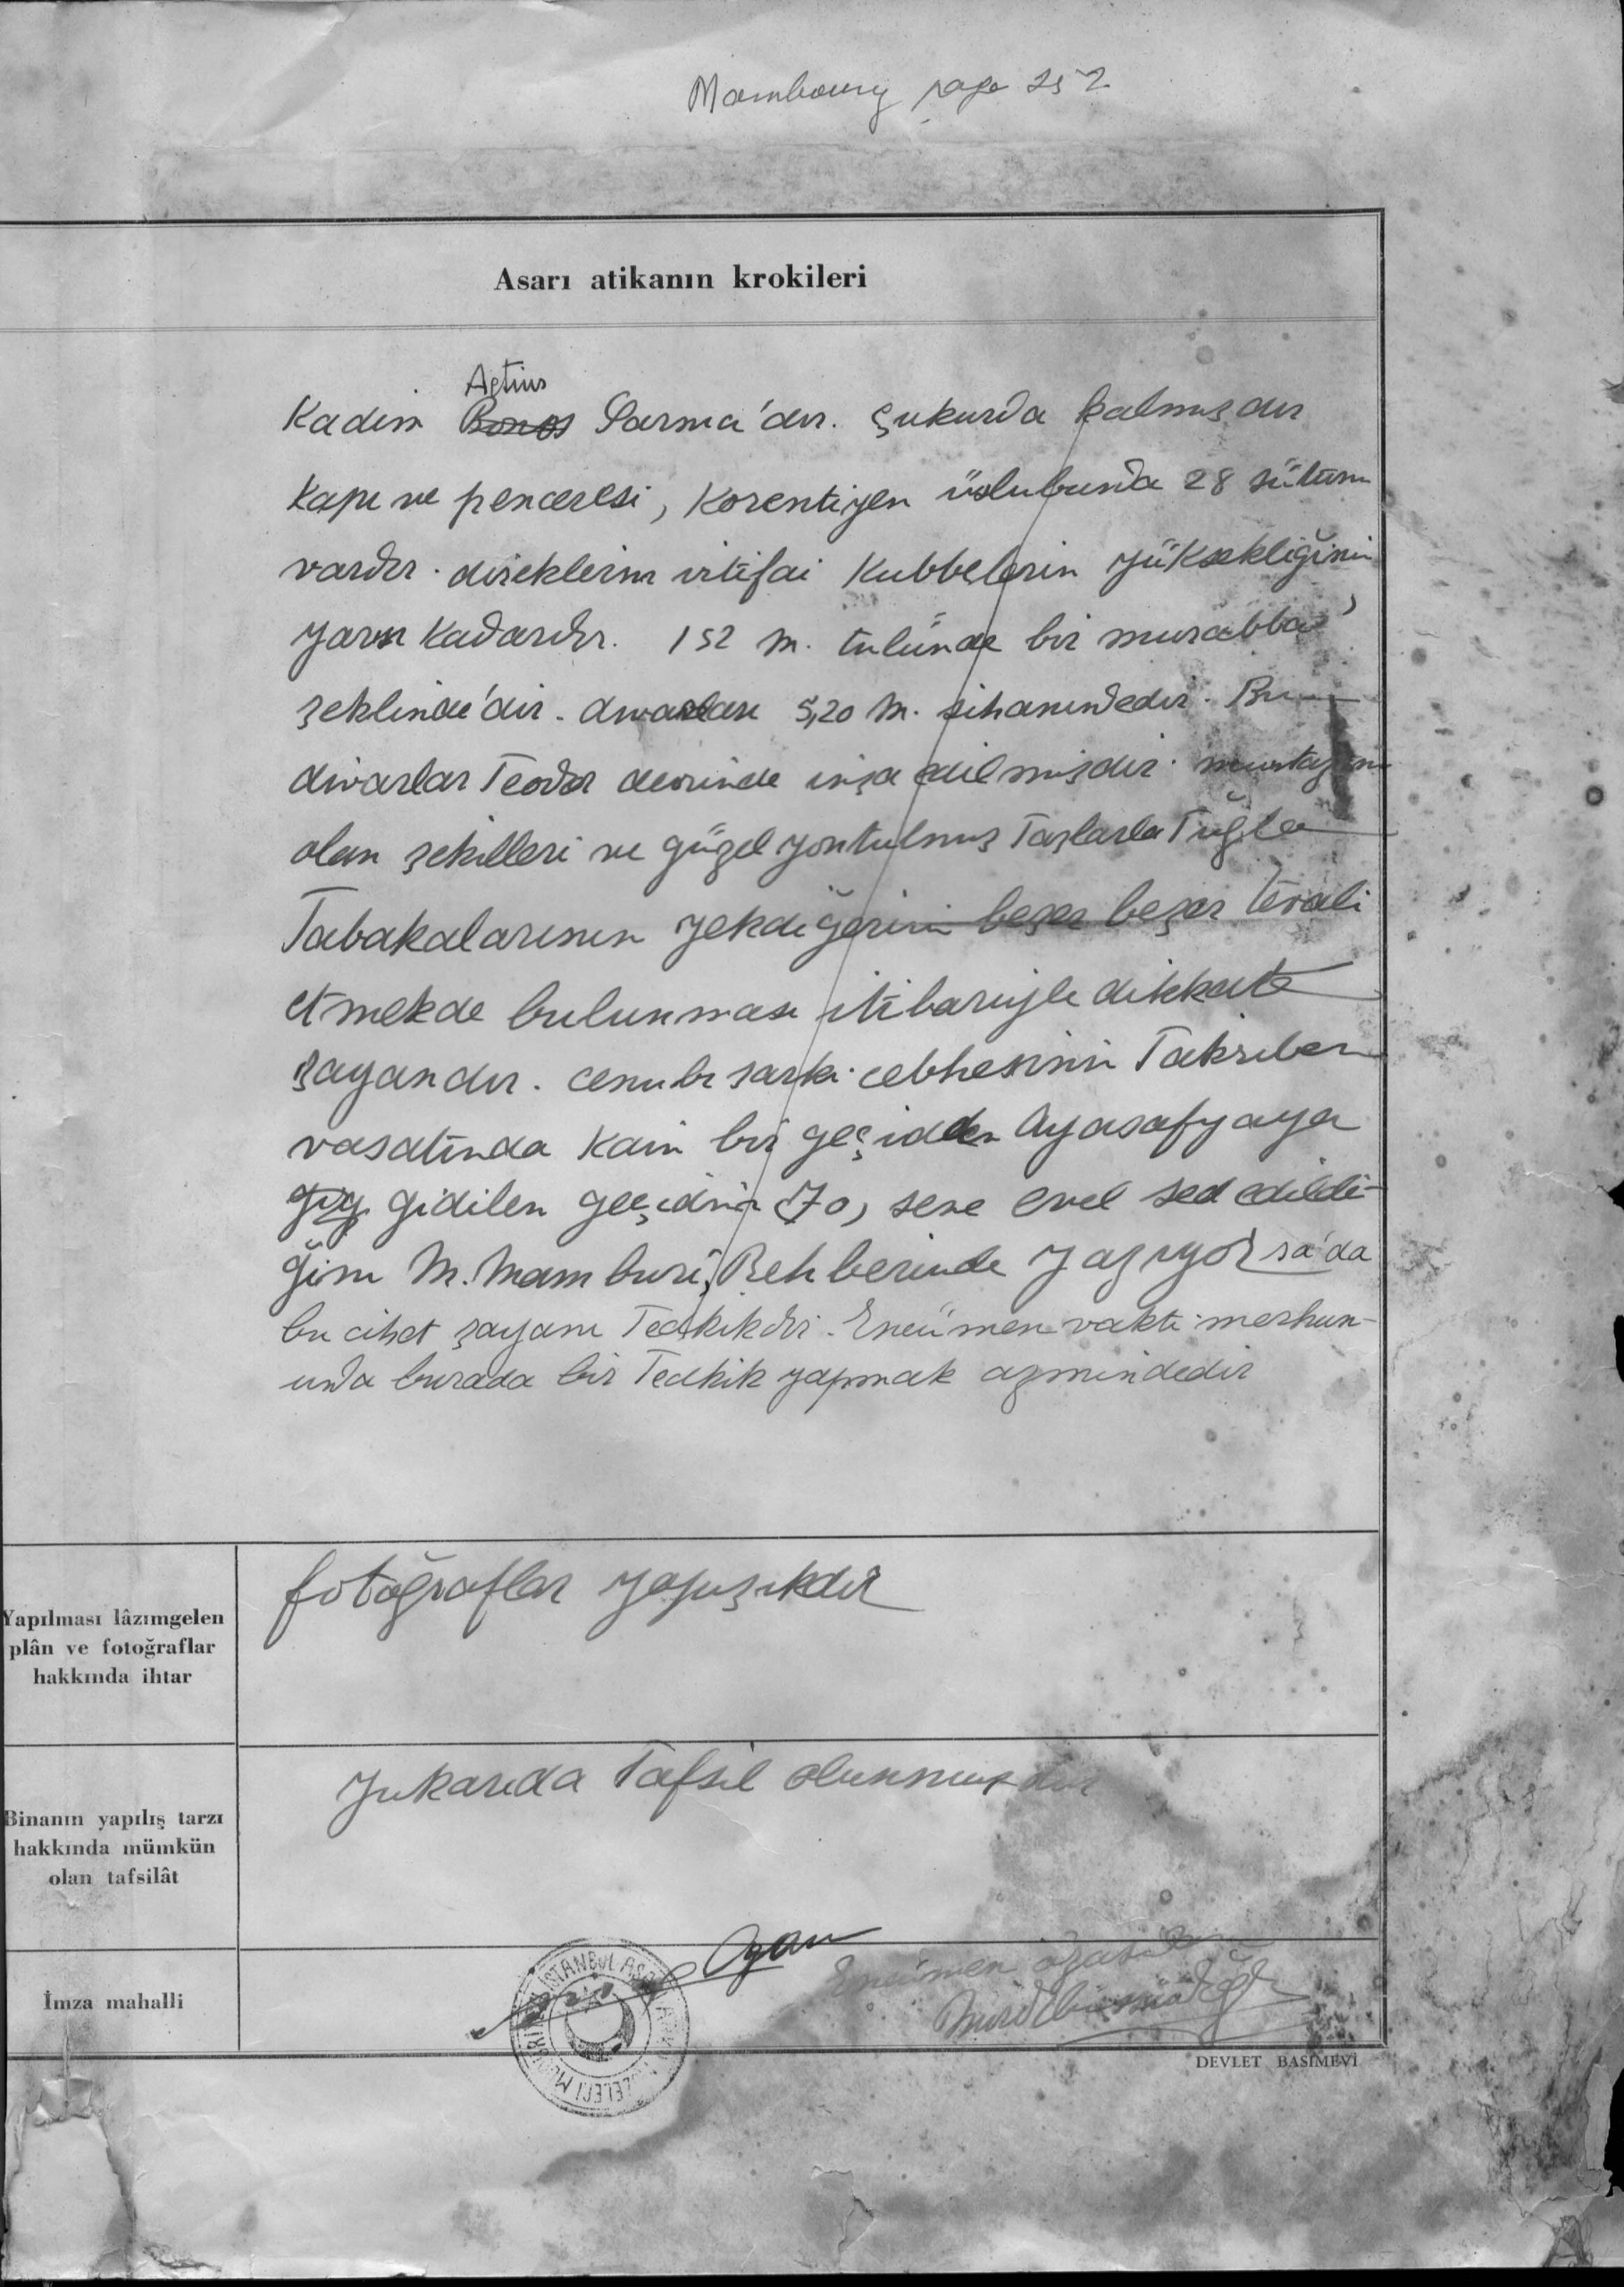 Mamboury page 252
Asarı atikanın krokileri
Aetius
Kadim Bonos Sarnıcı'dır. Çukurda kalmışdır
Kapı ve penceresi, Korentiyen üslubunda 28 sütunu
vardır. direklerin irtifai Kubbelerin yüksekliğinin
yarısı kadardır. 152 m. tulünde bir murabba'
şeklinde'dir. divarları 5,20 m. sihanındedir. Bu
divarlar Teodos devrinde inşa edilmişdir. muntazam
olan şekilleri ve güzel yontulmuş Taşlarla Tuğla
Tabakalarının yekdiğerini beşer beşer tevali
etmekde bulunması itibariyle dikkate
şayandır. cenubi şarki cebhesinin Takriben
vasatında Kain bir geçidden Ayasofyaya
gidilen geçidin 70, sene evel sed edildi-
ğini M. Mamburi, Rehberinde yazıyorsa'da
bu cihet şayanı Tedkikdir. Encümen vakti merhun-
unda burada bir Tedkik yapmak azmindedir
Yapılması lâzımgelen
plân ve fotoğraflar
hakkında ihtar
fotoğraflar yapışıkdır
Binanın yapılış tarzı
hakkında mümkün
olan tafsilât
Yukarıda Tafsil olunmuşdur
İmza mahalli
Ogan
Encümen azasından
İSTANBUL ASARI
DEVLET BASIMEVİ